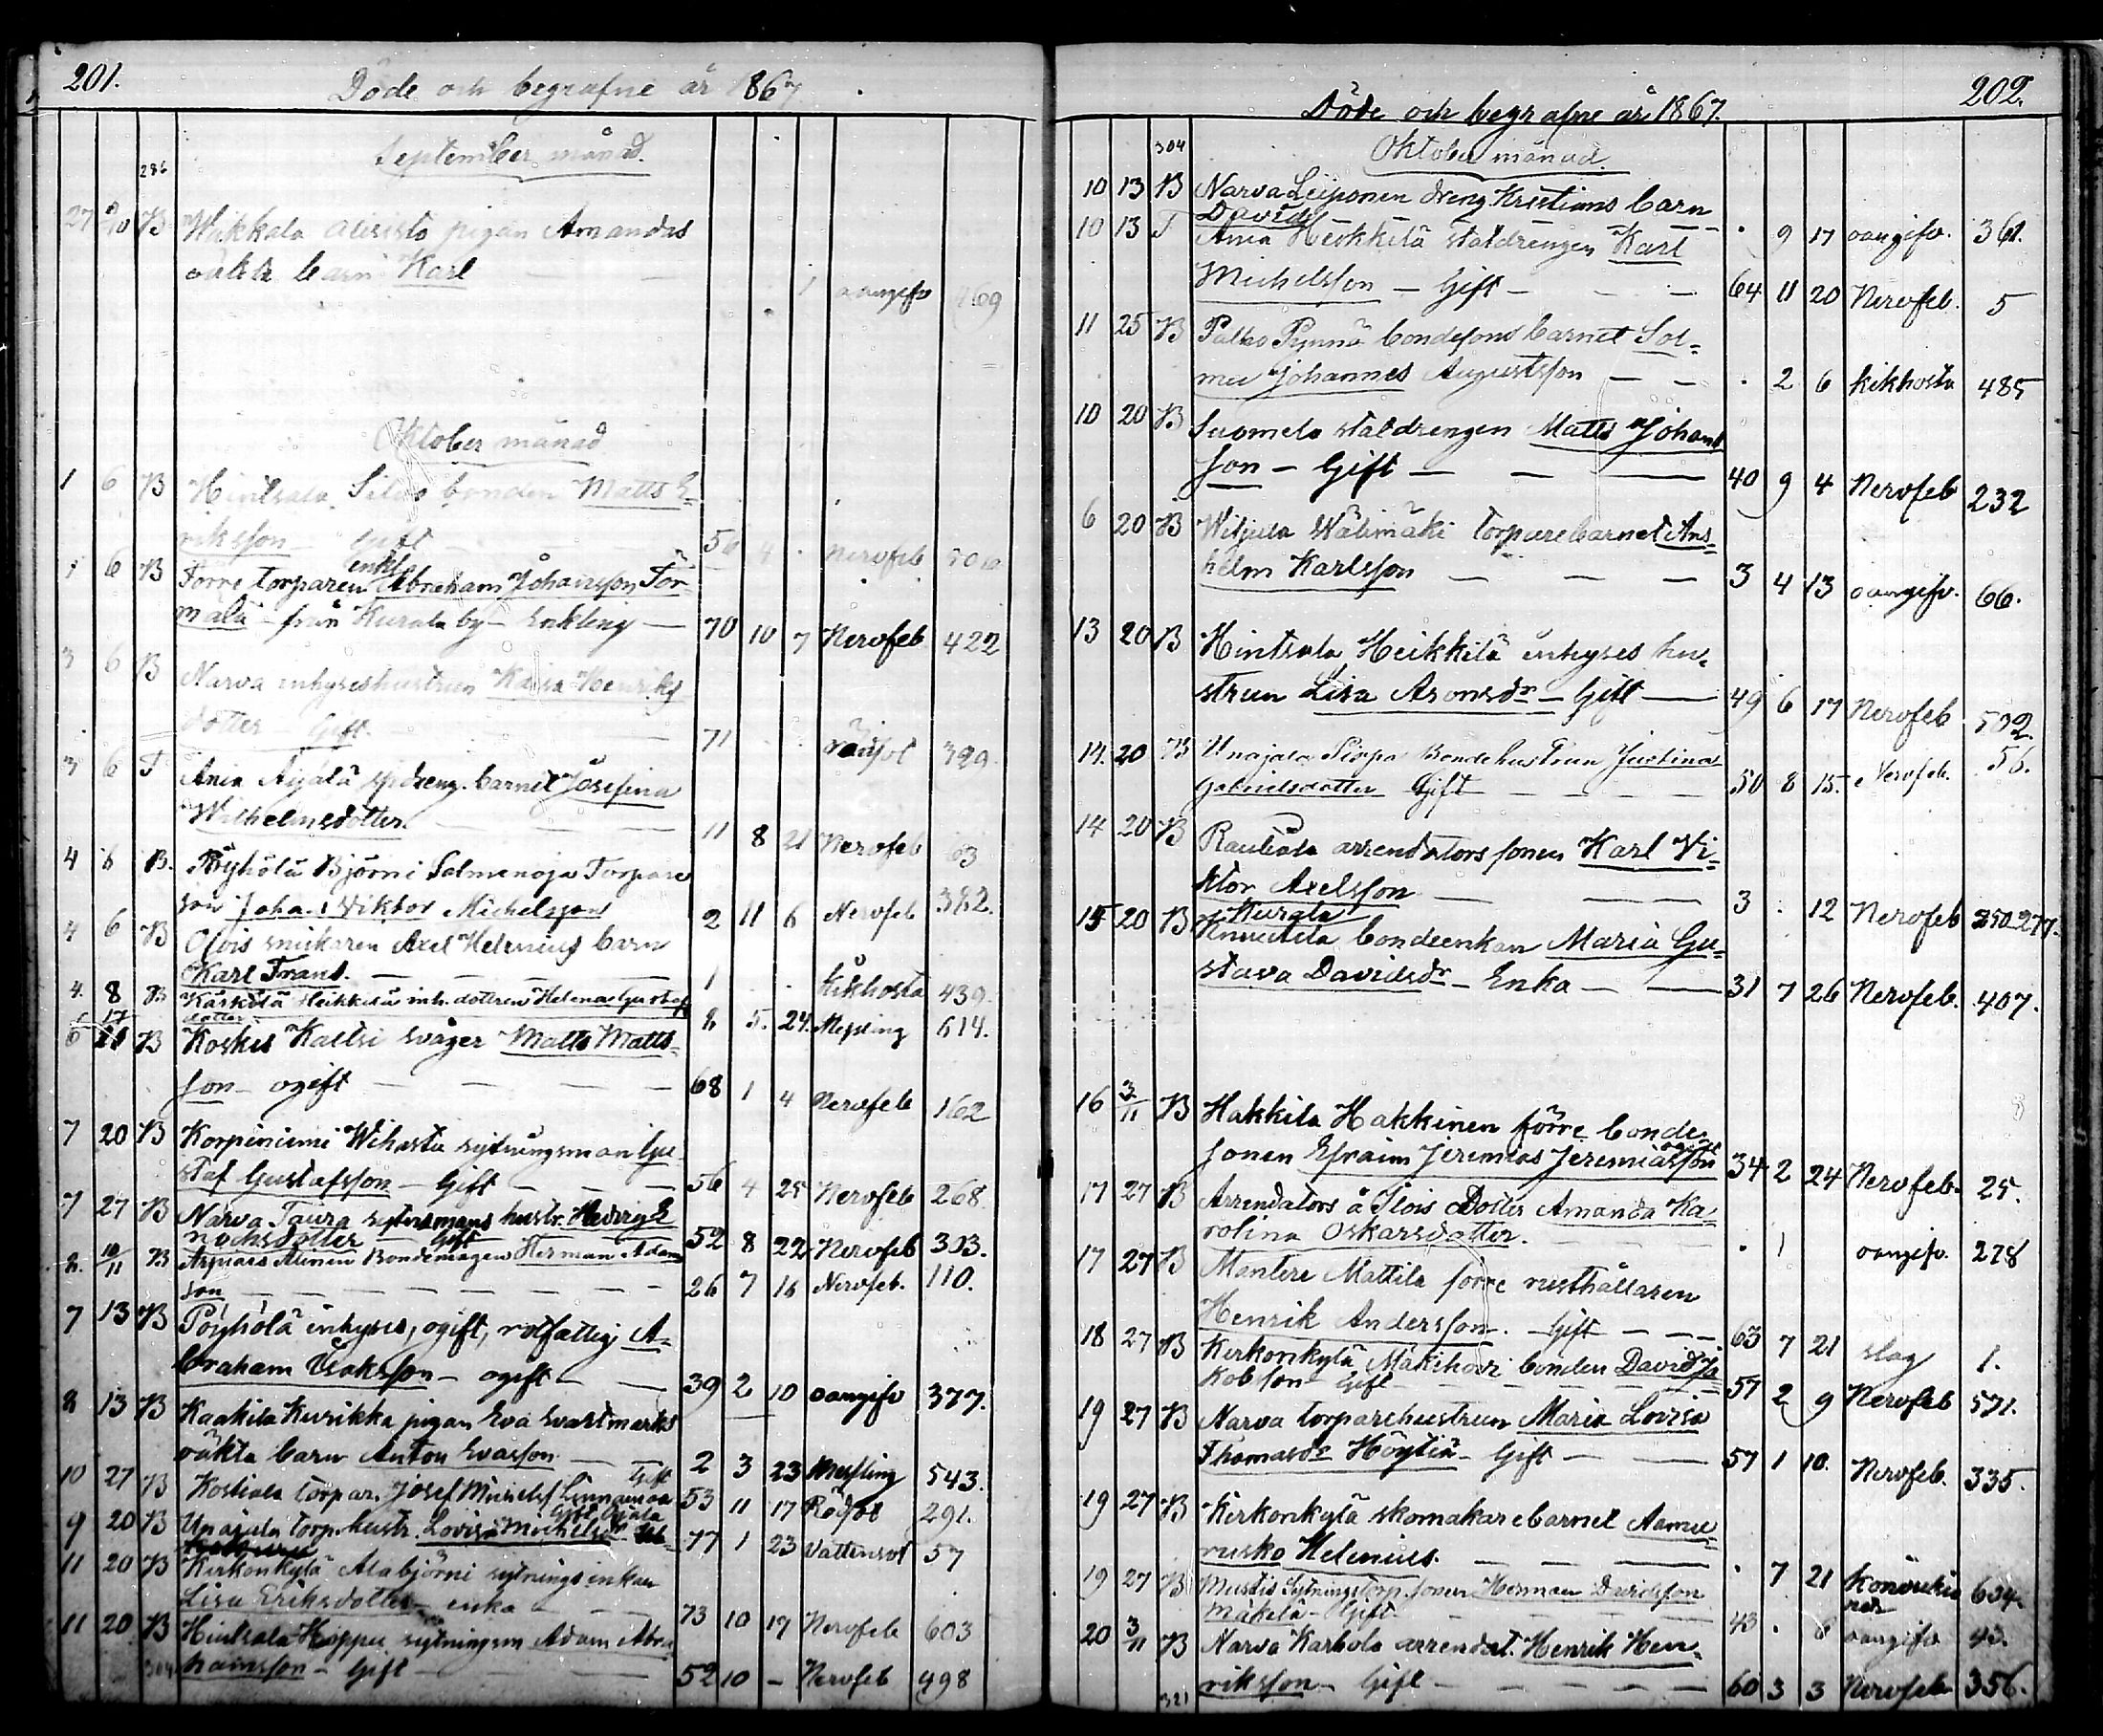 201.
Döde och begrafne år 1867
September månad.
286
27 B Wakkala pigan Amandas
oäkta barn Karl — 1 oangifv 469
Oktober månad
1 6 B Hintsala Silas bonden Matts E-
riksson Gift 56 4 . Nervfeb
enkl.
1 6 B Torre torparen Abraham Johansson Tor-
mälä från Kurala by — Enkling — 70 10 7 Nervfeb 422
3 6 B Narva inhyseshustrun Kaisa Henriks
dotter — Gift. — 71 . . rödsot 329.
3 6 T Ania Äijälä barnet Josefina
Wilhelmsdotter. — 11 8 21 Nervfeb 63
4 6 B. Pöyhölä Björni Salmenoja Torpare
son Joha. Viktor Michelsson 2 11 6 Nervfeb 382.
4 6 B Olois snickaren Axel Helenius barn
Karl Frans. — — — 1 . . Kikhosta 439.
4. 8 B Kärkilä Heikkilä inh. dottren Helena Gustafs
dotter 2 5. 24. Messling 614.
6 B Koskis Kaltsi svåger Matts Matts-
son — ogift — — — 68 1 4 Nervfeb 162
7 20 B Korpiniemi Wihastu sytningsman Gu
staf Gustafsson — Gift — — — 56 4 25 Nervfeb 268.
7 27 B Narva Taura sytnismans hustr. Hedvig E
nochsdotter — Gift 52 8 22 Nervfeb 303.
8. 10/11 B Alinen Bondemågen Herman Adams
son — — — 26 7 16 Nervfeb. 110.
7 13 B Pöyhölä inhyses, ogift, rotfattig A-
braham Isaksson — ogift — — 39 2 10 oangifv 377.
8 13 B Kaakila Kurikka pigan Eva Svartmarks
oäkta barn Anton Evasson — 2 3 23 Messling 543.
10 27 B Kostiala torpar. Josef Michelss. Linnainmaa Gift 53 11 17 Rödsot 291.
9 20 B Unajala torp.hustr. Lovisa Michelsdr 77 1 23 Vattensot 57
11 20 B Kirkonkylä Alabjörni sytnings enkan
Lisa Eriksdotter — enka — — 73 10 17 Nervfeb 603
11 20 B Hintsala Hoppu sytningsm Adam Abra
hamsson — Gift — — 52 10 — Nervfeb 498
304
202.
Döde och begrafne år 1867.
304
Oktober månad.
10 13 B Narva Leiponen dreng Kristians barn
David — . 9 17 oangifv. 361.
10 13 T Ania Heikkilä statdrengen Karl
Michelsson — Gift — — — 64 11 20 Nervfeb. 5
11 25 B Palho Pynnä bondesons barnet Sol-
mu Johannes Augustsson — — . 2 6 kikhosta 485
10 20 B Suomela statdrengen Matts Johans
son — Gift — — — 40 9 4 Nervfeb 232
6 20 B Wiljula Wälimäki torparebarnet Ans-
helm Karlsson — — — 3 4 13 oangifv. 66.
13 20 B Hintsala Heikkilä inhyses hu-
strun Lisa Aronsdr — Gift — 49 6 17 Nervfeb 502.
14. 20 B Unajala Sirppa Bondehustrun Justina
Gabrielsdotter Gift — — — 50 8 15. Nervfeb. 56.
14 20 B Rauhiala arrendators sonen Karl Vi-
ktor Axelsson — — 3 . 12 Nervfeb 277.
Kurala
15 20 B Knuutila bondeenkan Maria Gu-
stava Davidsdr — Enka — — 31 7 26 Nervfeb. 407.
16 3/11 B Hakkila Hakkinen förre bonde-
sonen Efraim Jeremias Jeremiasson 34 2 24 Nervfeb. 25.
17 27 B Arrendators å Ilois Dotter Amanda Ka-
rolina Oskarsdotter. — — . 1 oangifv. 278
17 27 B Mantere Mattila förre rusthållaren
Henrik Andersson. — Gift — — — 63 7 21 slag 1.
18 27 B Kirkonkylä Mäkihovi bonden David Ja
kobsson Gift — — — 57 2 9 Nervfeb 571.
19 27 B Narva torparehustrun Maria Lovisa
Thomasdr Höytiä — Gift — — 57 1 10. Nervfeb. 335.
19 27 B Kirkonkylä skomakarebarnet
Helenius. — — — . 7 21 634.
19 27 B Mustis Sytningstorp. sonen Herman Davidsson
Mäkelä — Gift — — — 43 . 8 oangifv 43.
20 3/11 B Narva Karhola arrendat. Henrik Hen-
riksson — Gift — — — 60 3 3 Nervfeb 356.
321